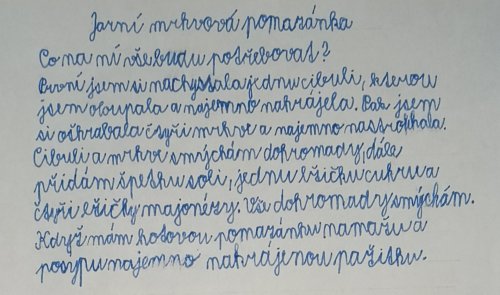 Jarní mrkvová pomazánka
Co na ní všebudu potřebovat?
První jsem si nachystala jednu cibuli, kterou
jsem oloupala a najemno nakrájela. Pak jsem
si oškrabala čtyři mrkve a najemno nastrouhala.
Cibuli a mrkve smýchám dohromady, dále
přidám špetku soli, jednu lžičku cukru a
čtyři lžičky majonézy. Vše dohromady smýchám.
Když mám hotovou pomazánku namažu a
posypu najemno nakrájenou pažitku.